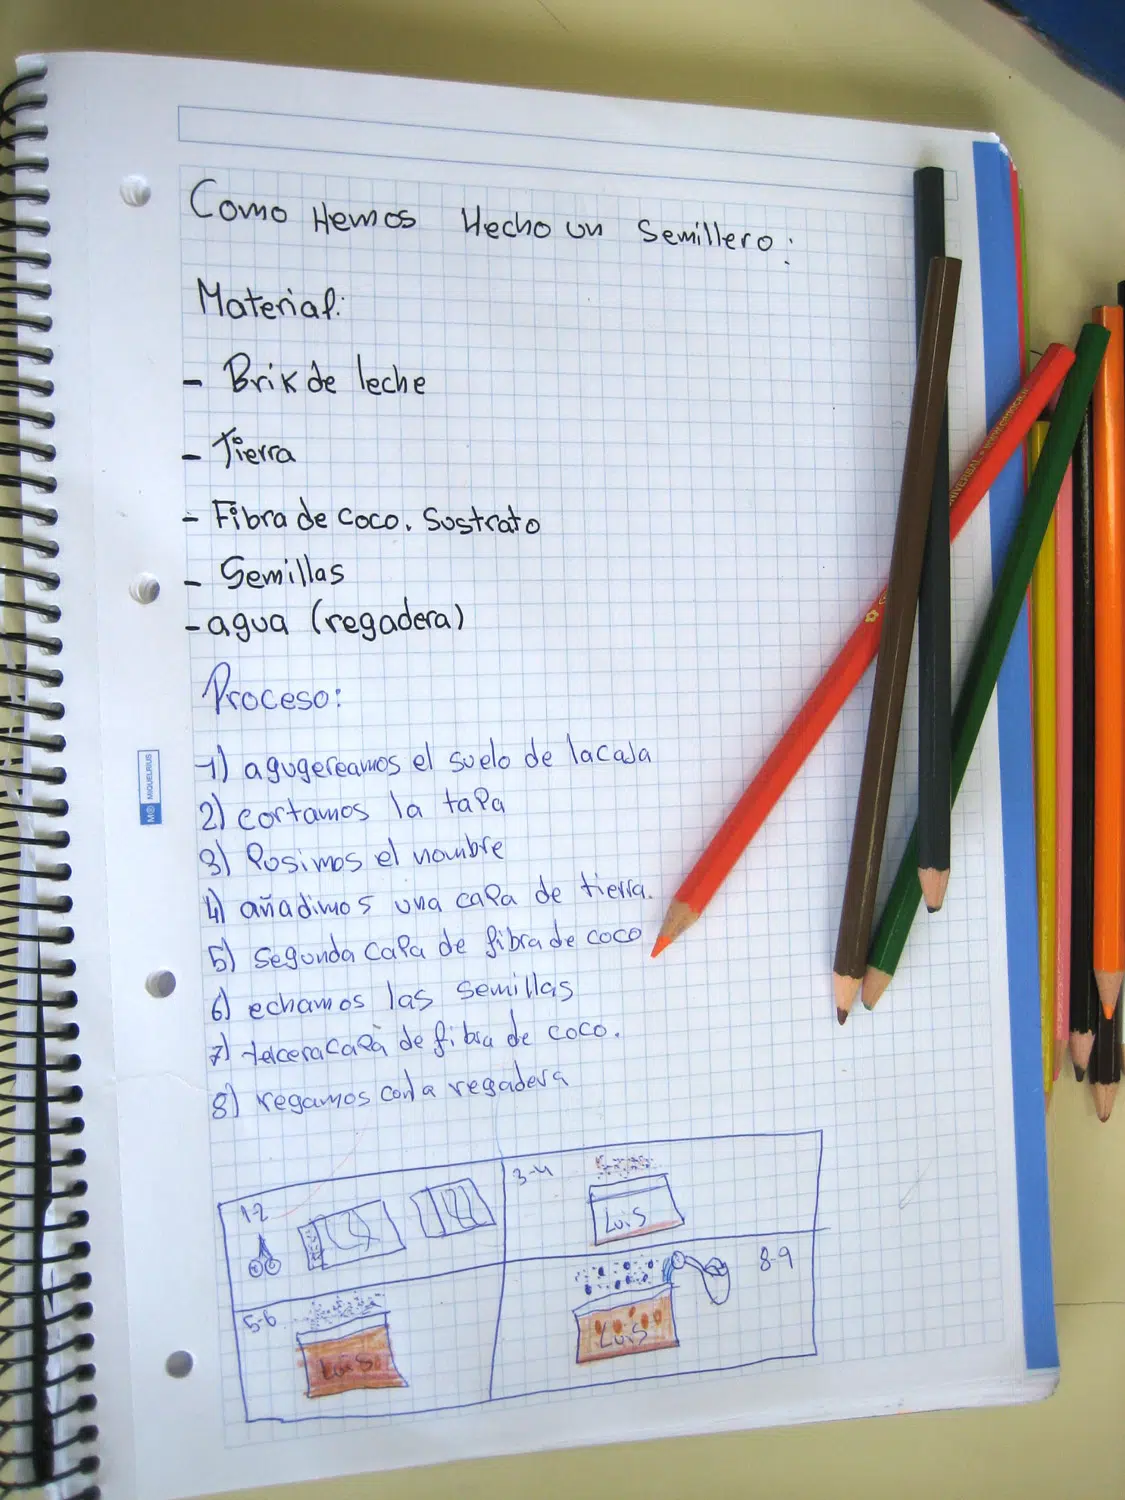 Como Hemos Hecho un Semillero:
Material:
- Brik de leche
- Tierra
- Fibra de coco. Sustrato
- Semillas
- agua (regadera)
Proceso:
1) agugereamos el suelo de la caja
2) cortamos la tapa
3) Pusimos el nombre
4) añadimos una capa de tierra.
5) segunda capa de fibra de coco
6) echamos las semillas
7) tercera capa de fibra de coco.
8) regamos con la regadera
1-2
3-4
Luis
5-6
Luis
8-9
Luis
MIQUELRIUS
UNIVERBAL